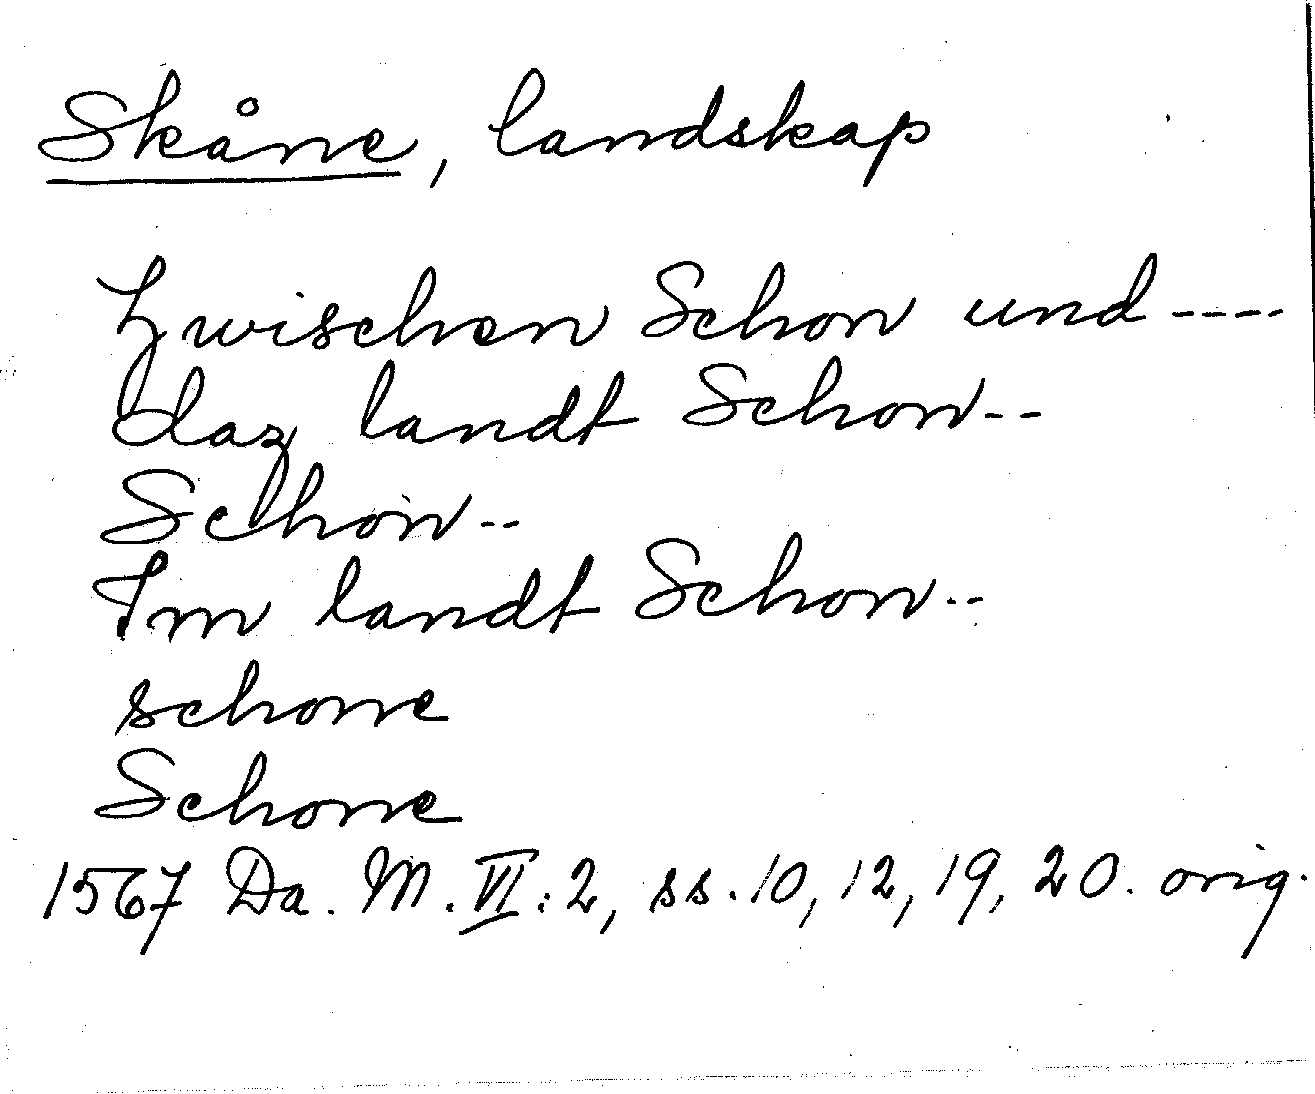 Skåne, landskap
Zwischen Schon und ----
daz landt Schon--
Schon--
Im landt Schon--
schone
Schone
1567 Da. M. VI: 2, ss. 10, 12, 19, 20. orig.